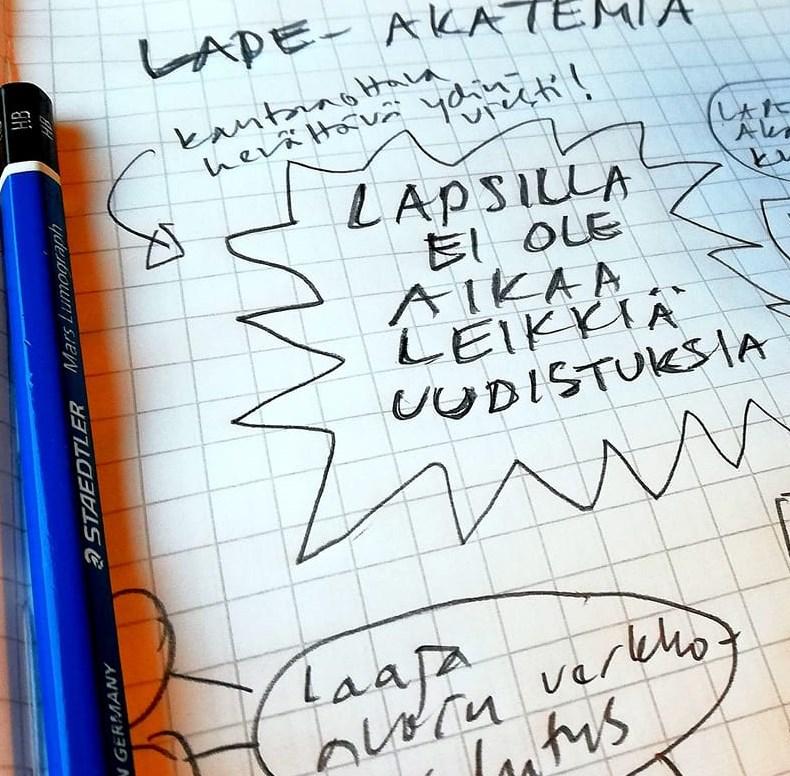 LAPE- AKATEMIA
kantaaottava
herättävä ydin-
viesti!
LAPSILLA
EI OLE
AIKAA
LEIKKIÄ
UUDISTUKSIA
LAPE
Laaja verkko-
HB
Mars Lumograph
STAEDTLER
GERMANY